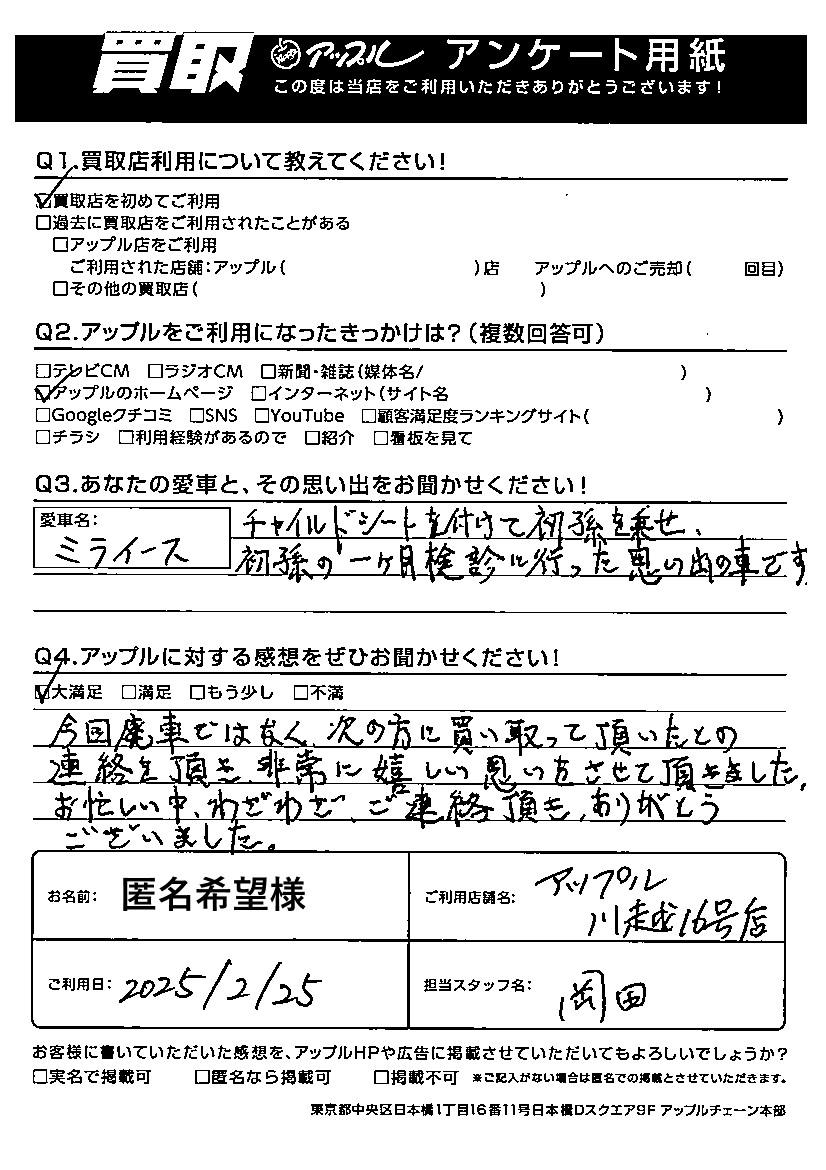 買取 アップル アンケート用紙
この度は当店をご利用いただきありがとうございます!
Q1.買取店利用について教えてください!
☑買取店を初めてご利用
□過去に買取店をご利用されたことがある
□アップル店をご利用
ご利用された店舗:アップル( )店 アップルへのご売却( 回目)
□その他の買取店( )
Q2.アップルをご利用になったきっかけは?(複数回答可)
□テレビCM □ラジオCM □新聞・雑誌(媒体名/ )
☑アップルのホームページ □インターネット(サイト名 )
□Googleクチコミ □SNS □YouTube □顧客満足度ランキングサイト( )
□チラシ □利用経験があるので □紹介 □看板を見て
Q3.あなたの愛車と、その思い出をお聞かせください!
愛車名:
ミライース
チャイルドシートを付けて初孫を乗せ、
初孫の一ヶ月検診に行った思い出の車です
Q4.アップルに対する感想をぜひお聞かせください!
☑大満足 □満足 □もう少し □不満
今回廃車ではなく、次の方に買い取って頂いたとの
連絡を頂き、非常に嬉しい思いをさせて頂きました。
お忙しい中、わざわざ、ご連絡頂き、ありがとう
ございました。
お名前: 匿名希望様
ご利用店舗名: アップル
川越16号店
ご利用日: 2025/2/25
担当スタッフ名: 岡田
お客様に書いていただいた感想を、アップルHPや広告に掲載させていただいてもよろしいでしょうか?
□実名で掲載可 □匿名なら掲載可 □掲載不可 ※ご記入がない場合は匿名での掲載とさせていただきます。
東京都中央区日本橋1丁目16番11号日本橋Dスクエア9F アップルチェーン本部